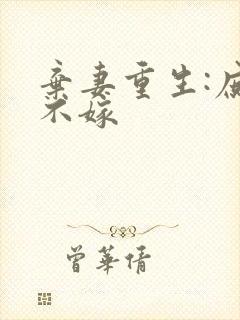 棄妻重生:庶
不嫁
曾華倩